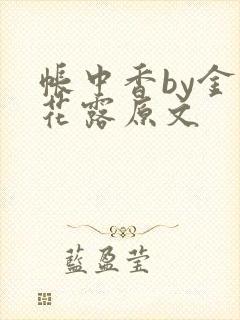 帐中香by金
花露原文
蓝盈莹